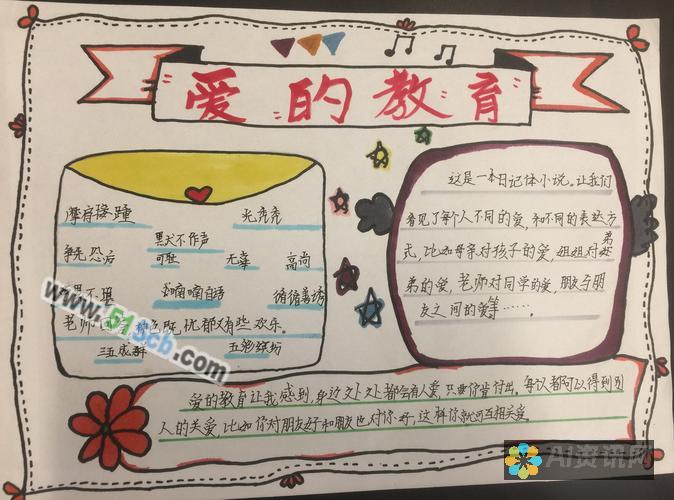 爱的教育
摩肩接踵 光秃秃
默不作声
争先恐后 可耻 无辜 高尚
不理 喃喃自语 循循善诱
老师 色既忧郁又有些欢乐。
三五成群 五彩缤纷
这是一本日记体小说。让我们
看见了每个人不同的爱,和不同的表达方
式,比如母亲对孩子的爱,姐姐对弟
弟的爱,老师对同学的爱,朋友与朋
友之间的爱等……。
爱的教育让我感到,身边处处都会有人爱,只要你肯付出。每 都可以得到别
人的关爱,比如你对朋友好和朋友也对你好,这样你就可互相关爱。
www.51scb.com
AI资讯网